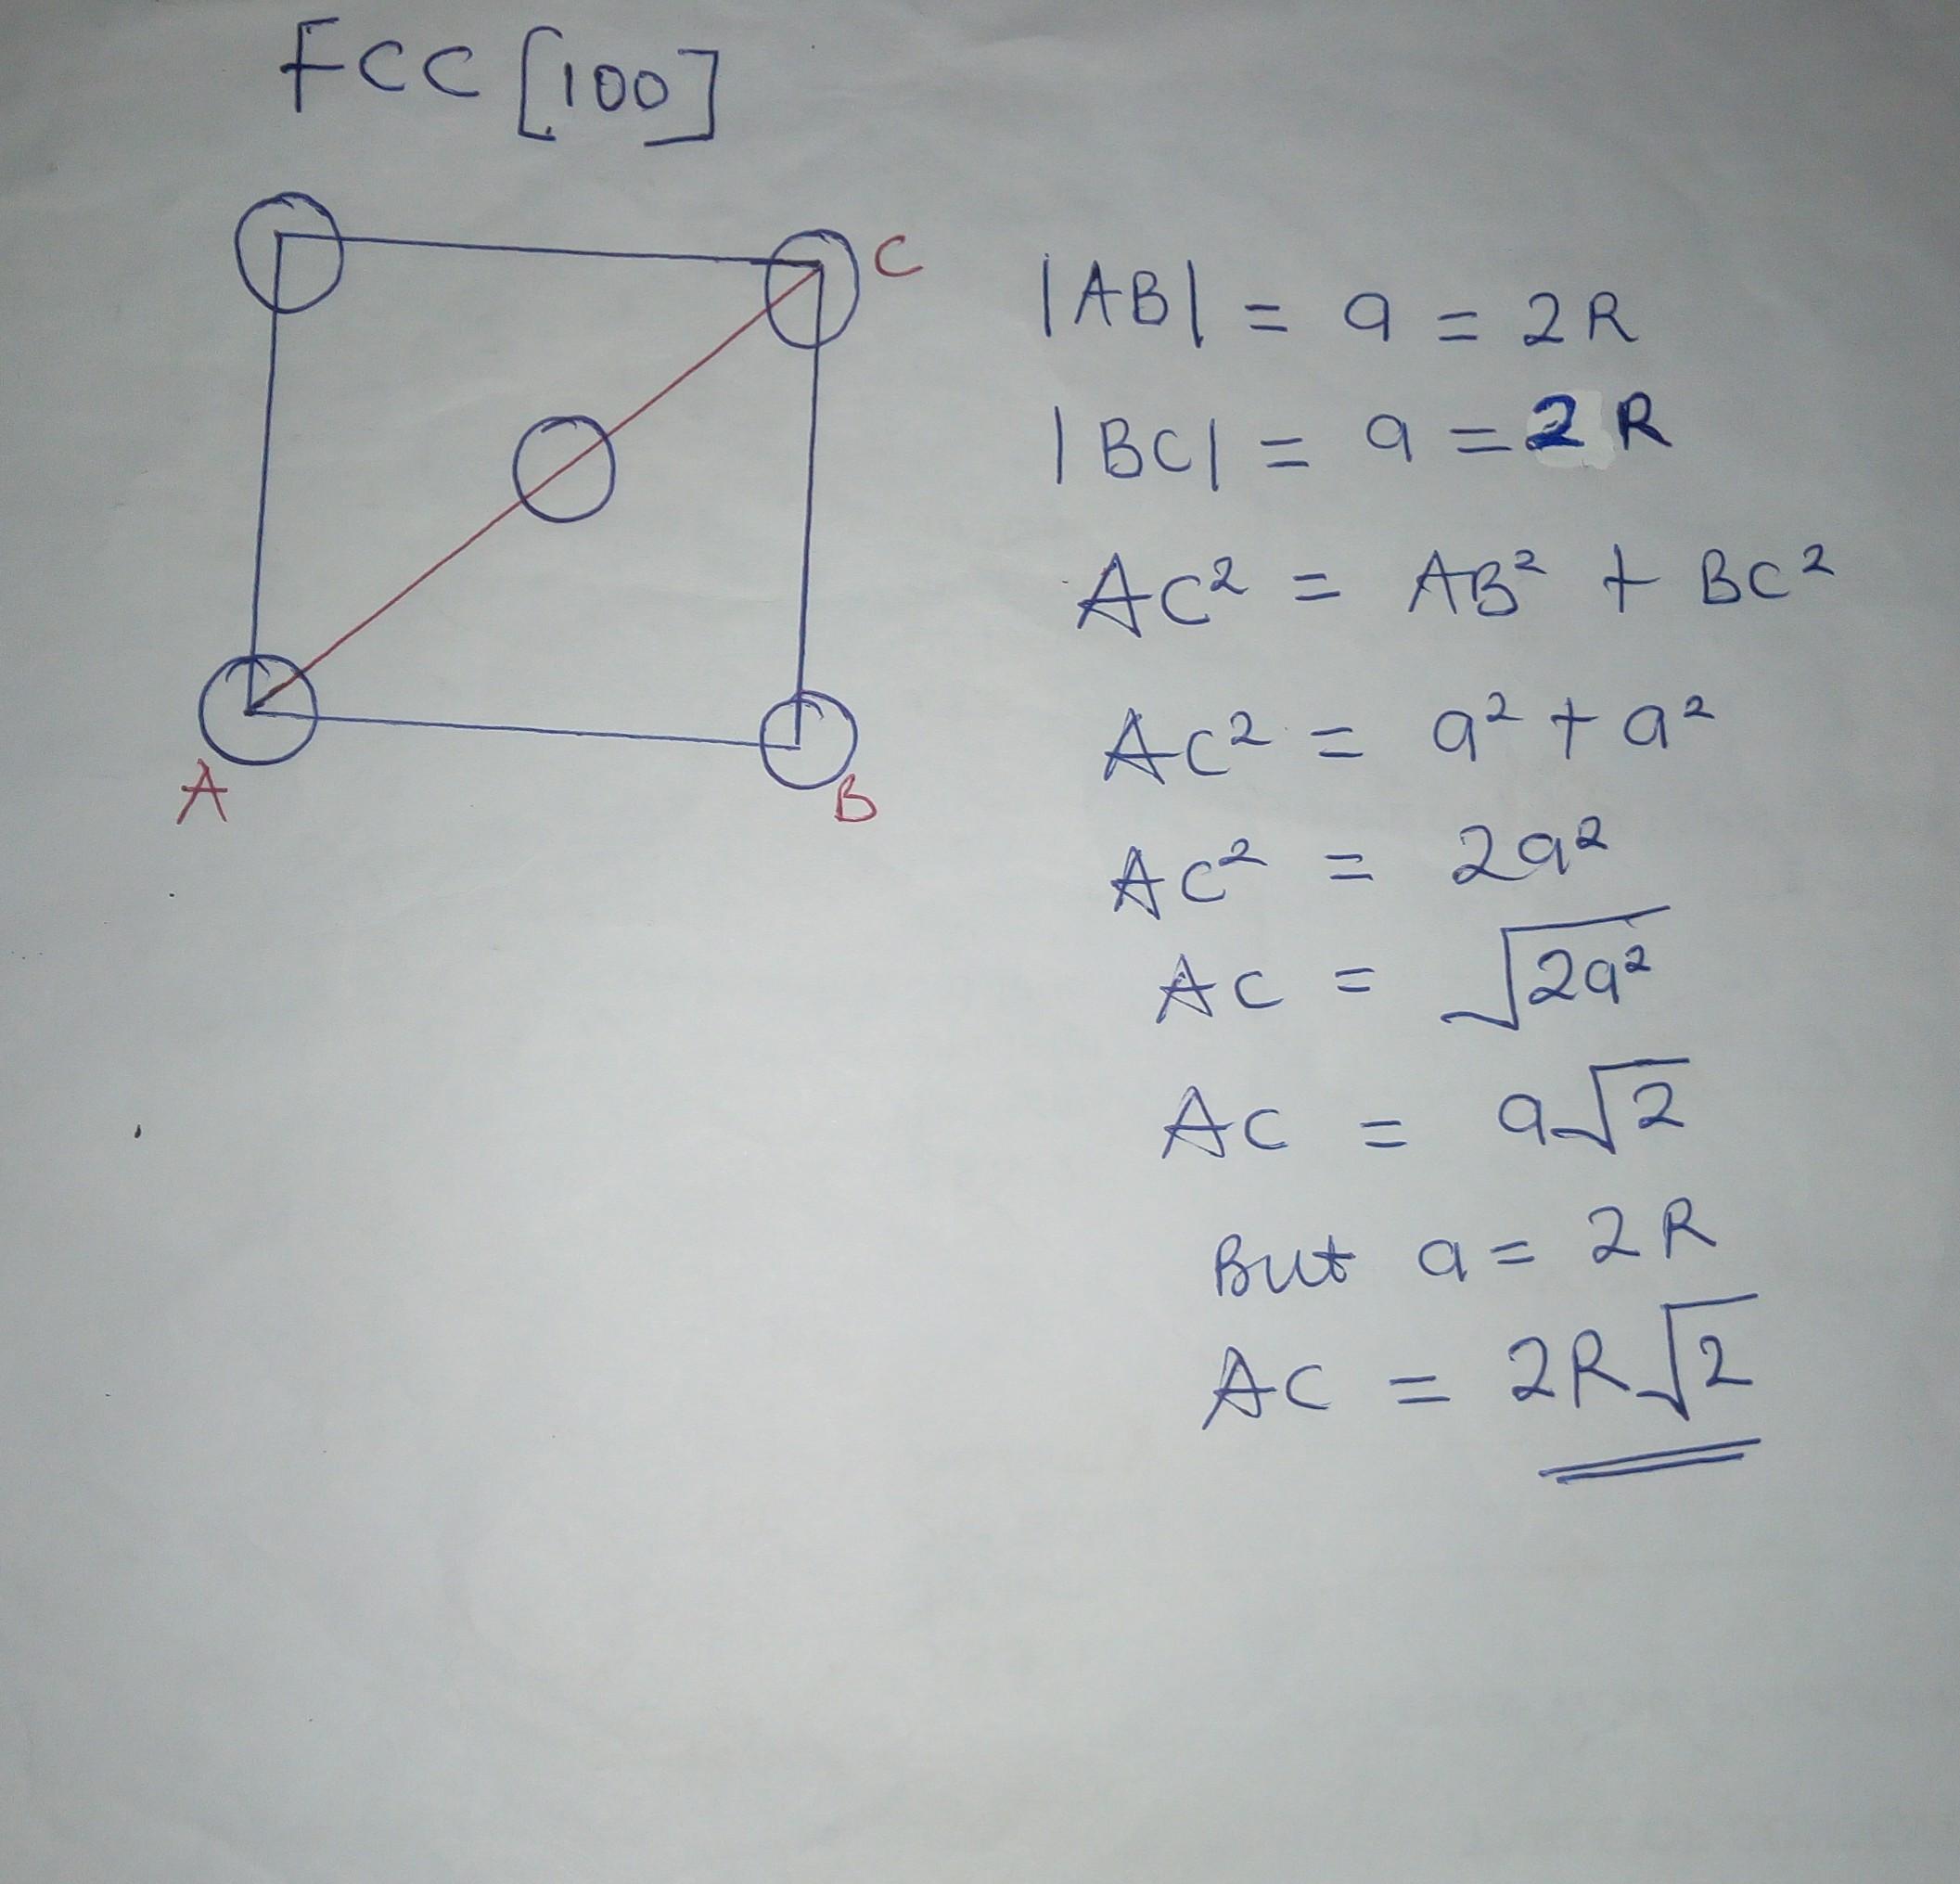 FCC [100]
C
A
B
|AB| = a = 2R
|BC| = a = 2R
AC² = AB² + BC²
AC² = a² + a²
AC² = 2a²
AC = √2a²
AC = a√2
But a = 2R
AC = 2R√2